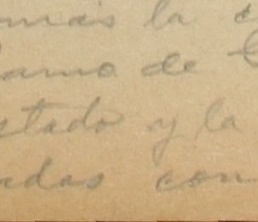 más la
amo de
stado y la
adas con